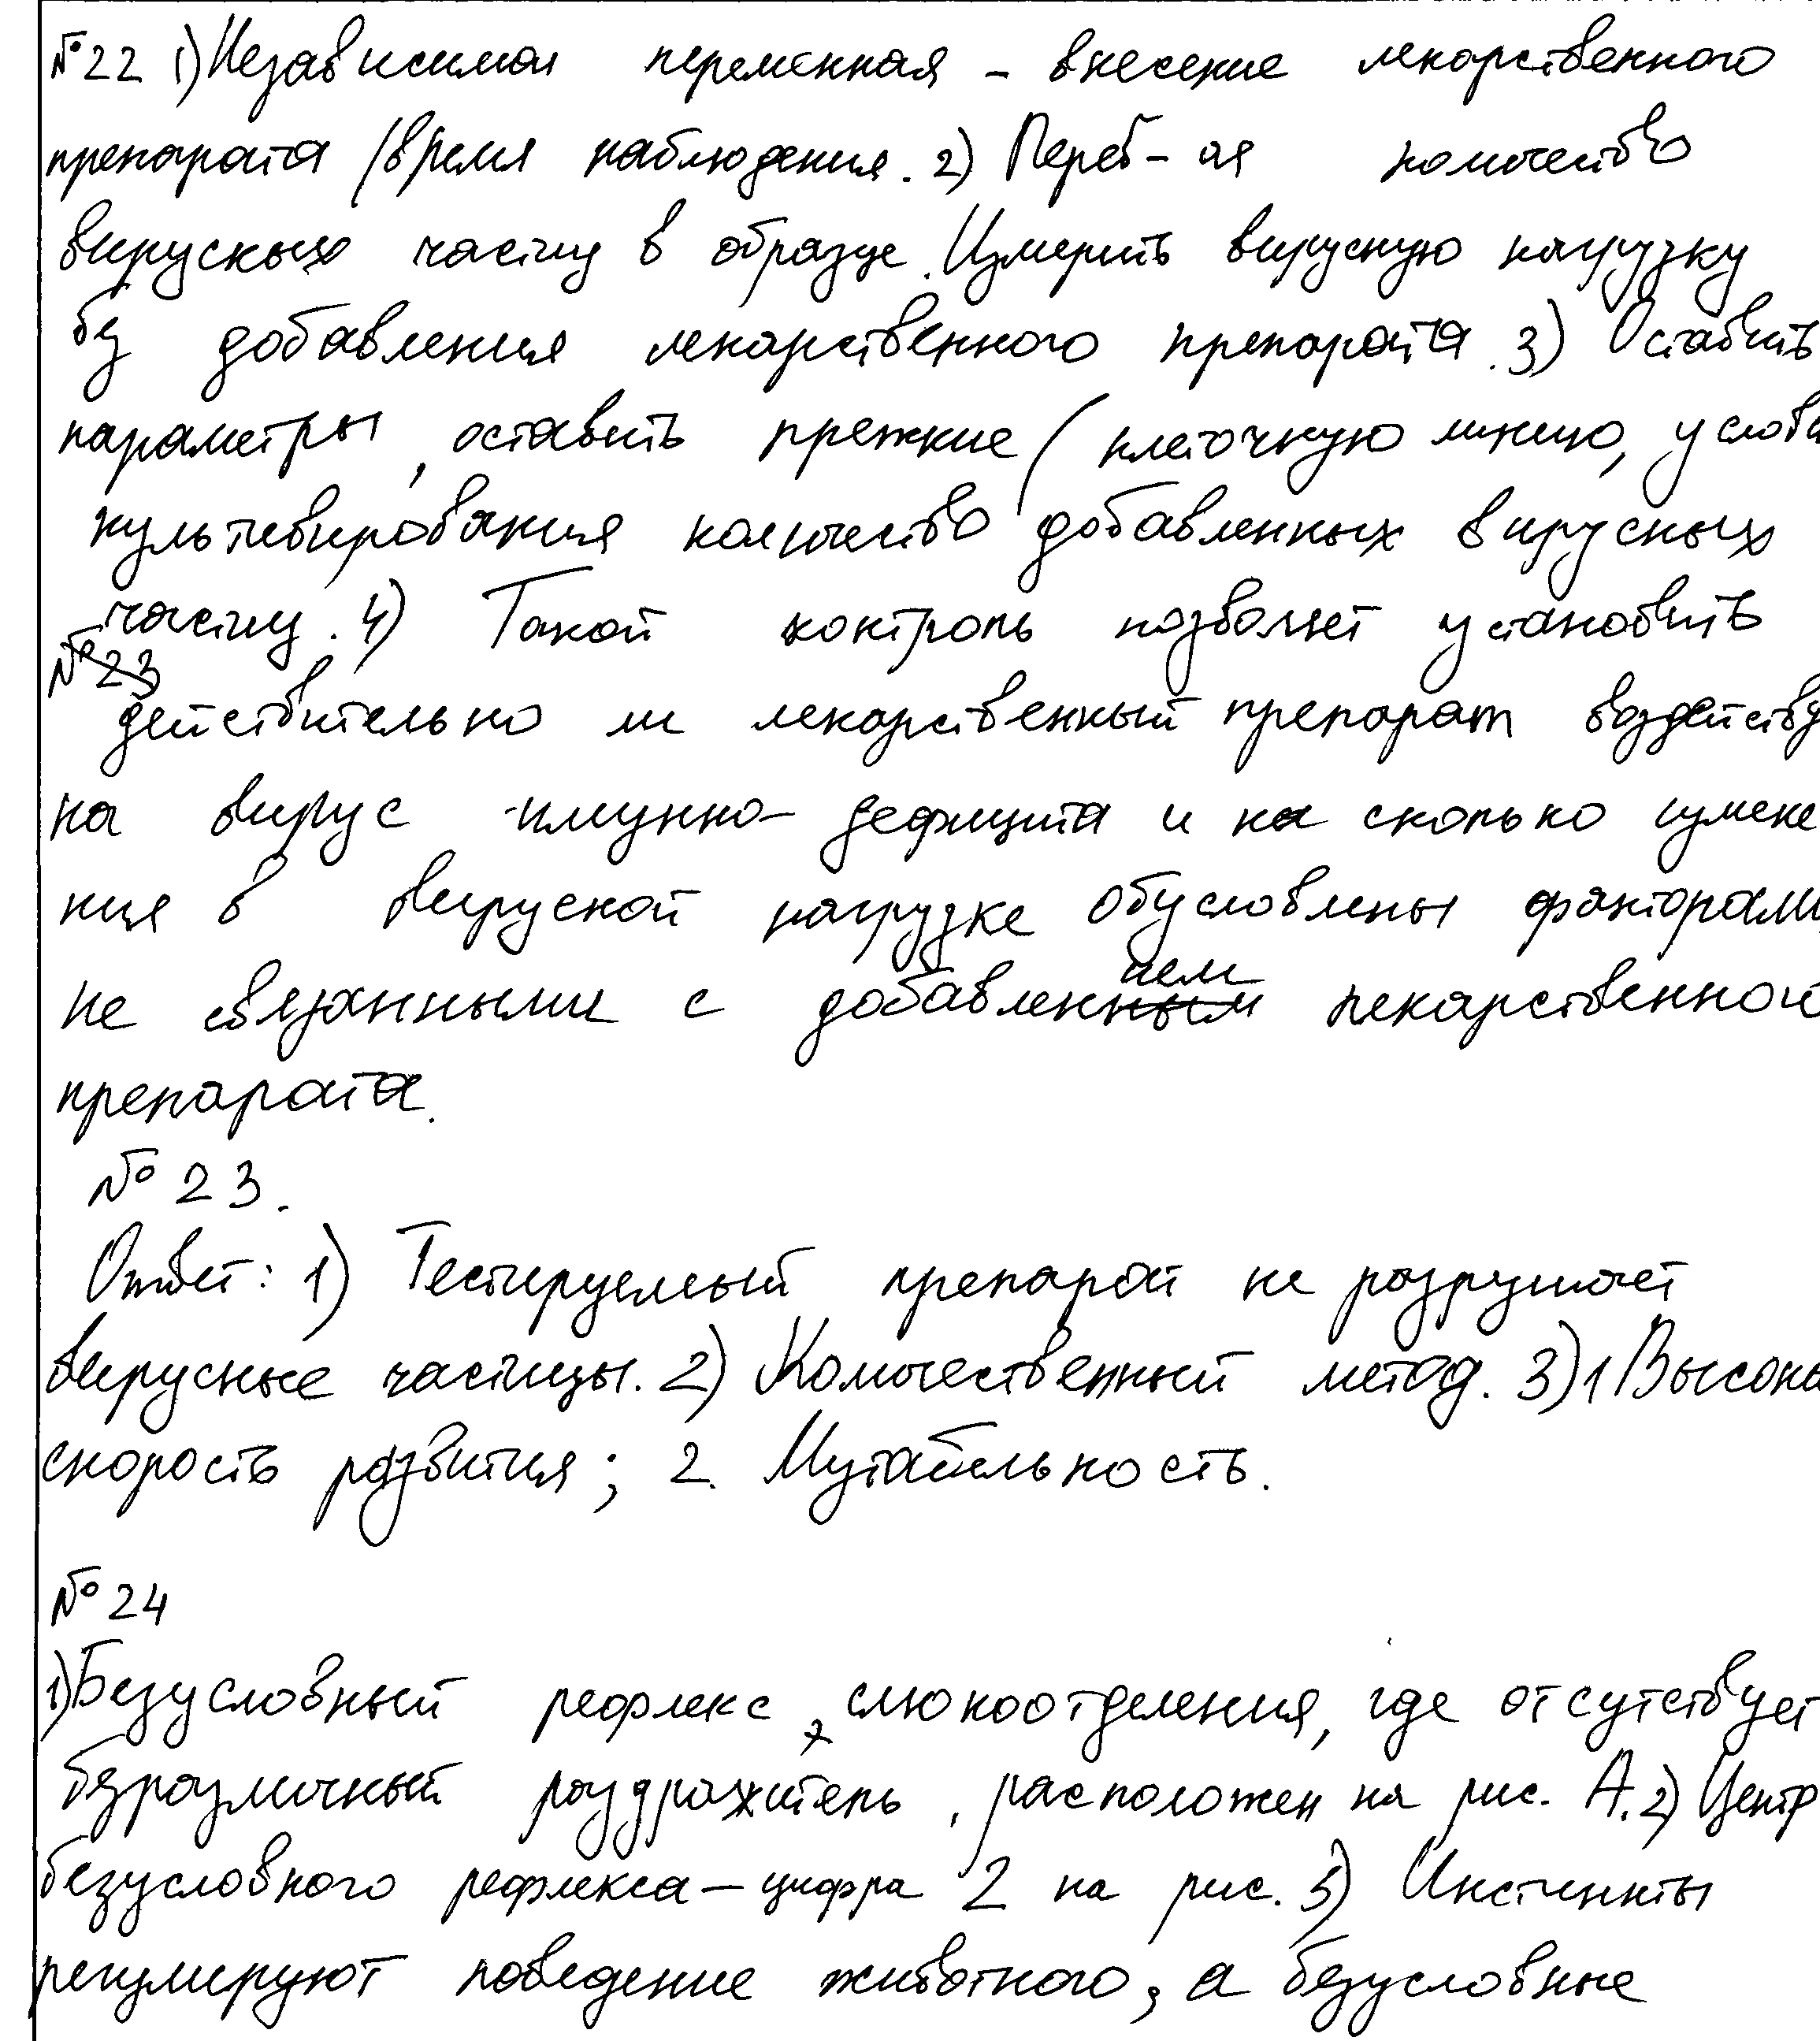 №22 1) Независимая переменная - внесение лекарственного
препарата /время наблюдения. 2) Перев-ая количество
вирусных частиц в образце. Измерить вирусную нагрузку
без добавления лекарственного препарата. 3) Оставить
параметры, оставить прежние (клеточную линию, услови
культивирования количество добавленных вирусных
частиц. 4) Такой контроль позволяет установить
№23
действительно ли лекарственный препарат воздейству
на вирус имунно-дефицита и на сколько измене
ния в вирусной нагрузке обусловлены факторами,
не связанными с добавлением лекарственного
препарата.
№ 23.
Ответ: 1) Тестируемый препарат не разрушает
вирусные частицы. 2) Количественный метод. 3) 1 Высока
скорость развития; 2. Мутабельность.
№ 24
1) Безусловный рефлекс слюноотделения, где отсутствует
безразличный раздражитель, расположен на рис. А. 2) Центр
безусловного рефлекса - цифра 2 на рис. 3) Инстинкты
регулируют поведение животного, а безусловные